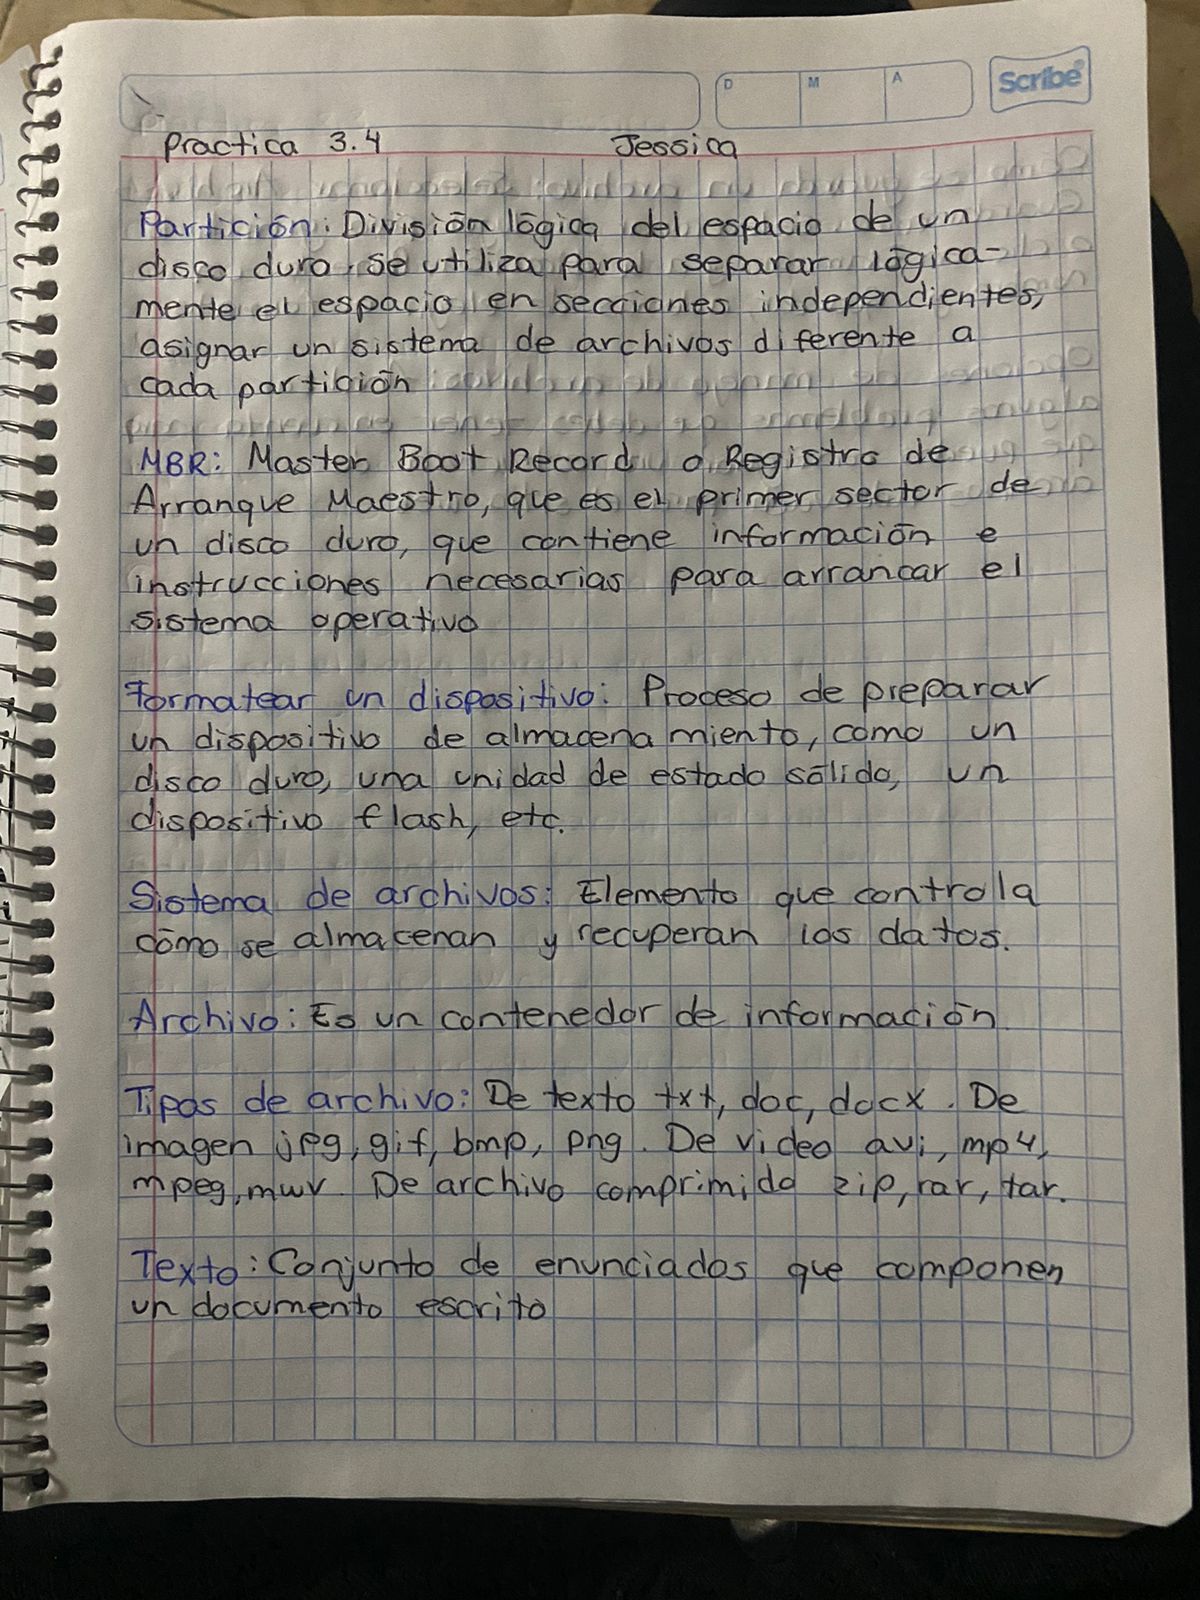 Scribe
D M A
Practica 3.4 Jessica
Partición: División lógica del espacio de un
disco duro, se utiliza para separar lógica-
mente el espacio en secciones independientes,
asignar un sistema de archivos diferente a
cada partición
MBR: Master Boot Record o Registro de
Arranque Maestro, que es el primer sector de
un disco duro, que contiene información e
instrucciones necesarias para arrancar el
sistema operativo
Formatear un dispositivo: Proceso de preparar
un dispositivo de almacenamiento, como un
disco duro, una unidad de estado sólido, un
dispositivo flash, etc.
Sistema de archivos: Elemento que controla
cómo se almacenan y recuperan los datos.
Archivo: Es un contenedor de información
Tipos de archivo: De texto txt, doc, docx. De
imagen jpg, gif, bmp, png. De video avi, mp4,
mpeg, mwv. De archivo comprimido zip, rar, tar.
Texto: Conjunto de enunciados que componen
un documento escrito